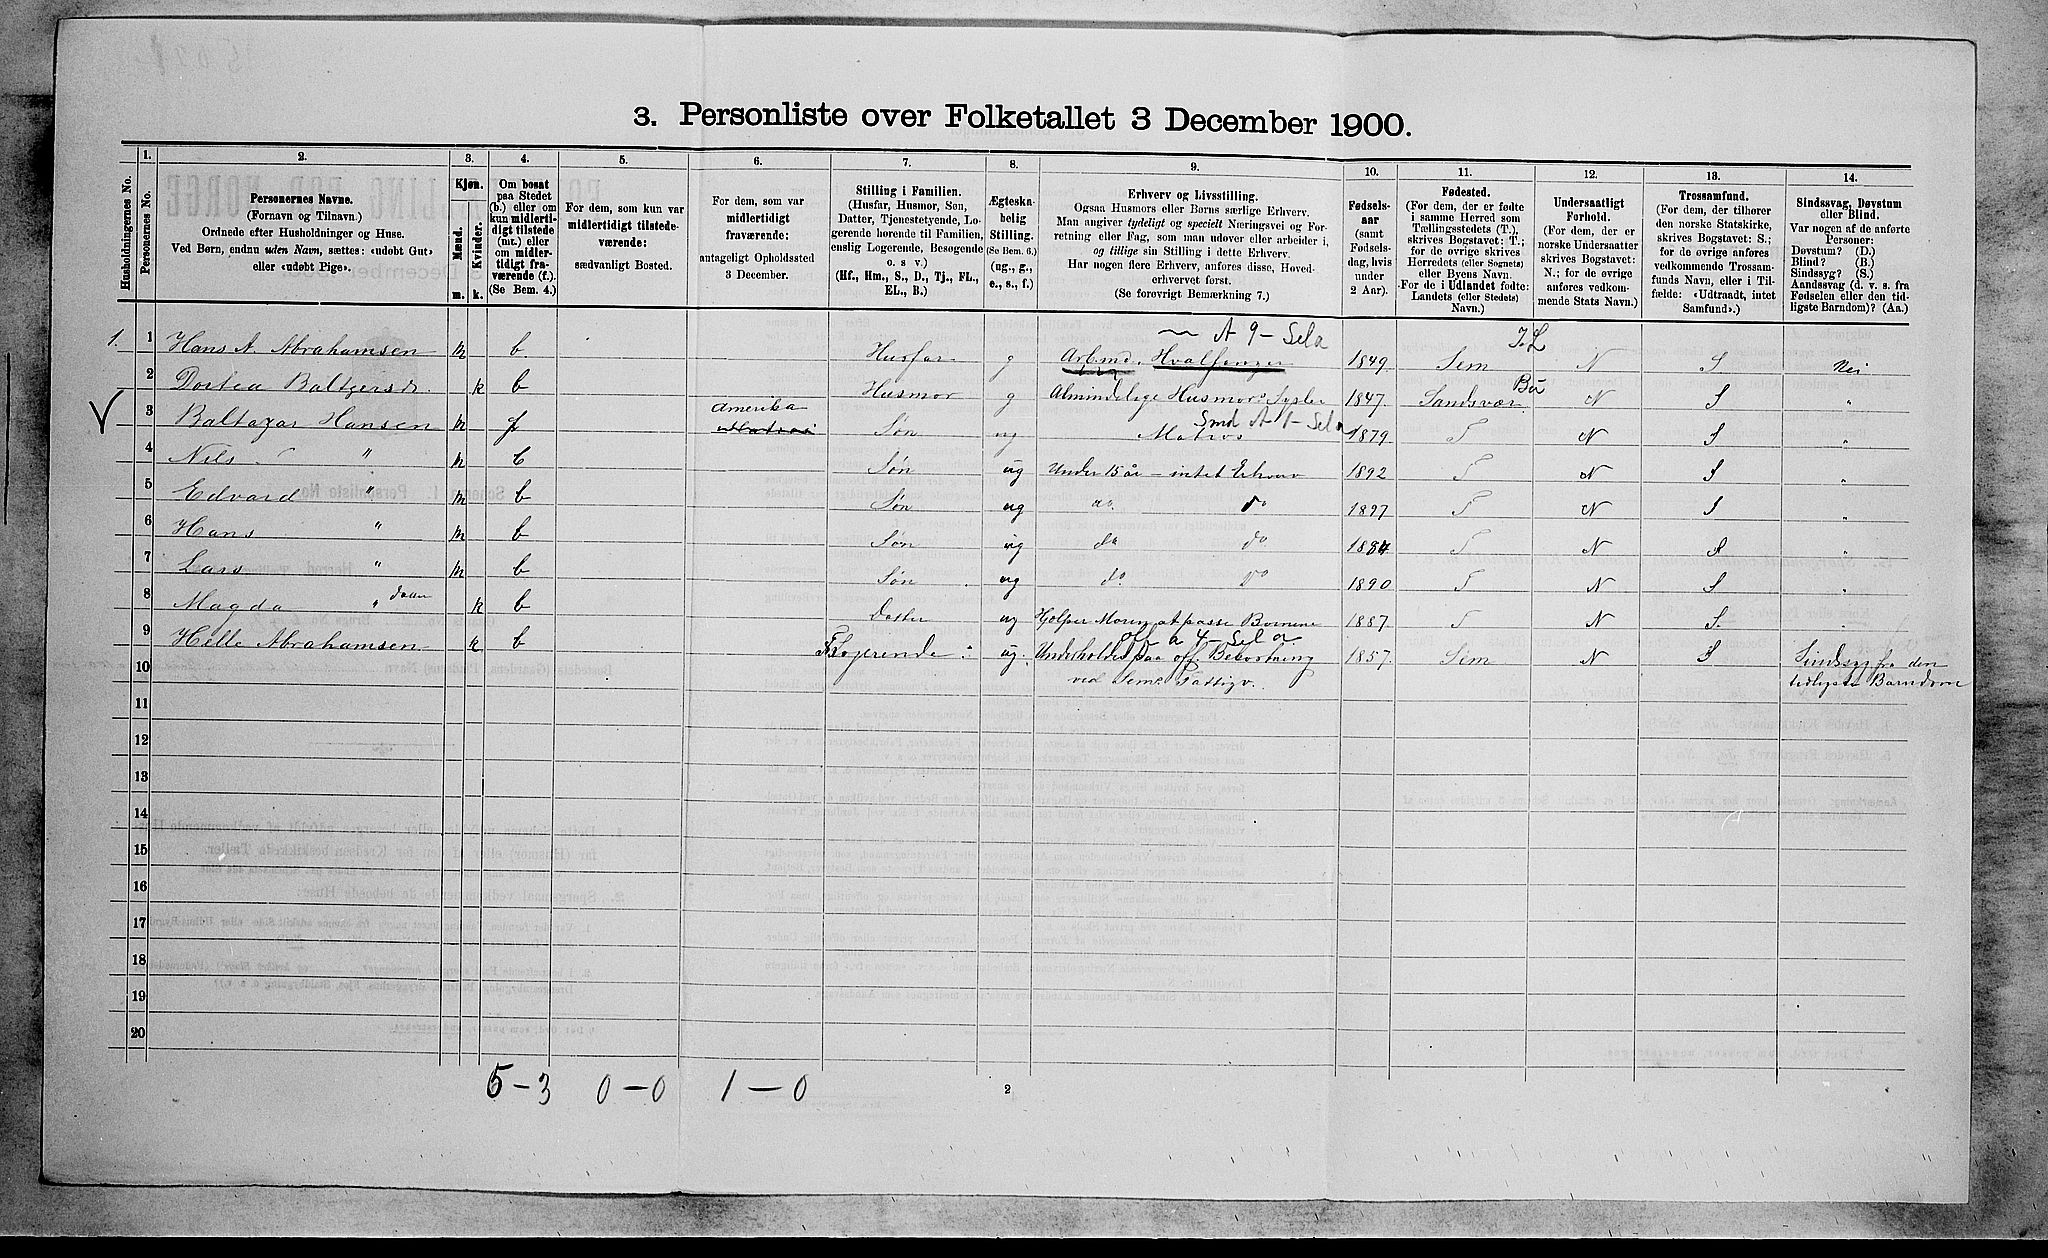 3. Personliste over Folketallet 3 December 1900.
Husholdningernes No.
1. Personernes No.
2. Personernes Navne.
(Fornavn og Tilnavn.)
Ordnede efter Husholdninger og Huse.
Ved Børn, endnu uden Navn, sættes: «udøbt Gut»
eller «udøbt Pige».
3. Kjøn.
Mænd. Kvinder.
m. k.
4. Om bosat
paa Stedet
(b.) eller om
kun midlerti-
digt tilstede
(mt.) eller
om midler-
tidigt fra-
værende (f.).
(Se Bem. 4.)
5. For dem, som kun var
midlertidigt tilstede-
værende:
sædvanligt Bosted.
6. For dem, som var
midlertidigt
fraværende:
antageligt Opholdssted
3 December.
7. Stilling i Familien.
(Husfar, Husmor, Søn,
Datter, Tjenestetyende, Lo-
gerende hørende til Familien,
enslig Logerende, Besøgende
o. s. v.)
(Hf., Hm., S., D., Tj., FL.,
EL., B.)
8. Ægteska-
belig
Stilling.
(Se Bem. 6.)
(ug., g.,
e., s., f.)
9. Erhverv og Livsstilling.
Ogsaa Husmors eller Børns særlige Erhverv.
Man angiver tydeligt og specielt Næringsvei og For-
retning eller Fag, som man udøver eller arbeider i,
og tillige sin Stilling i dette Erhverv.
Har nogen flere Erhverv, anføres disse, Hoved-
erhvervet først.
(Se forøvrigt Bemærkning 7.)
10. Fødsels-
aar
(samt
Fødsels-
dag, hvis
under
2 Aar).
11. Fødested.
(For dem, der er fødte
i samme Herred som
Tællingsstedets (T.),
skrives Bogstavet: T.;
for de øvrige skrives
Herredets (eller Sognets)
eller Byens Navn.
For de i Udlandet fødte:
Landets (eller Stedets)
Navn.)
12. Undersaatligt
Forhold.
(For dem, der er
norske Undersaatter
skrives Bogstavet:
N.; for de øvrige
anføres vedkom-
mende Stats Navn.)
13. Trossamfund.
(For dem, der tilhører
den norske Statskirke,
skrives Bogstavet: S.;
for de øvrige anføres
vedkommende Trossam-
funds Navn, eller i Til-
fælde: «Udtraadt, intet
Samfund».)
14. Sindssvag, Døvstum
eller Blind.
Var nogen af de anførte
Personer:
Døvstum? (D.)
Blind? (B.)
Sindssyg? (S.)
Aandssvag (d. v. s. fra
Fødselen eller den tid-
ligste Barndom)? (Aa.)
A 9 - Sela
1. 1 Hans A. Abrahamsen m b Husfar g Arbmd. Hvalfanger 1849 Sem N S Nei
2 Dortea Baltzersd. k b Husmor g Almindelige Husmors Sysler 1847. Sandsvær Bu N S "
Smd A 1 - Sela
V 3 Baltazar Hansen m f Amerika Søn ug Matros 1879 T N S "
4 Nils " m b Søn ug Under 15 år - intet Erhverv 1892 T N S "
5 Edvard " m b Søn ug do. do 1897 T N S "
6 Hans " m b Søn ug do do 1884 T N S "
7 Lars " m b Søn ug do do 1890 T N S "
8 Magda " datter k b Datter ug Hjælper Moren at passe Børnene 1887 T N S "
off a 4 - Sela
9 Helle Abrahamsen k b FLogerende ug. Underholdes paa off. Bekostning 1857. Sem N S Sindssyg fra den
10 ved Sems Fattigv. tidligste Barndom
11
12
13
14
15
16
17
18
19
20
5 - 3 0 - 0 1 - 0
2